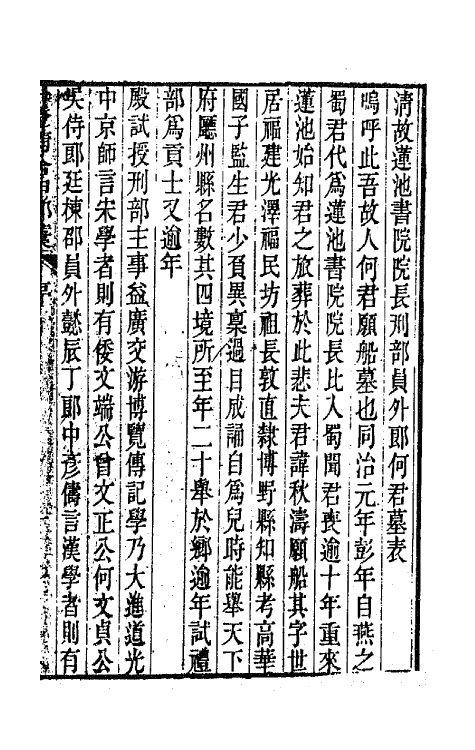 清故蓮池書院院長刑部員外郎何君墓表
嗚呼此吾故人何君願船墓也同治元年彭年自燕之
蜀君代爲蓮池書院院長比入蜀聞君喪逾十年重來
蓮池始知君之旅葬於此悲夫君諱秋濤願船其字世
居福建光澤福民坊祖長敦直隸博野縣知縣考高華
國子監生君少負異稟過目成誦自爲兒時能舉天下
府廳州縣名數其四境所至年二十舉於鄉逾年試禮
部爲貢士又逾年
殿試授刑部主事益廣交游博覽傳記學乃大進道光
中京師言宋學者則有倭文端公曾文正公何文貞公
吳侍郎廷棟邵員外懿辰丁郎中彥儔言漢學者則有